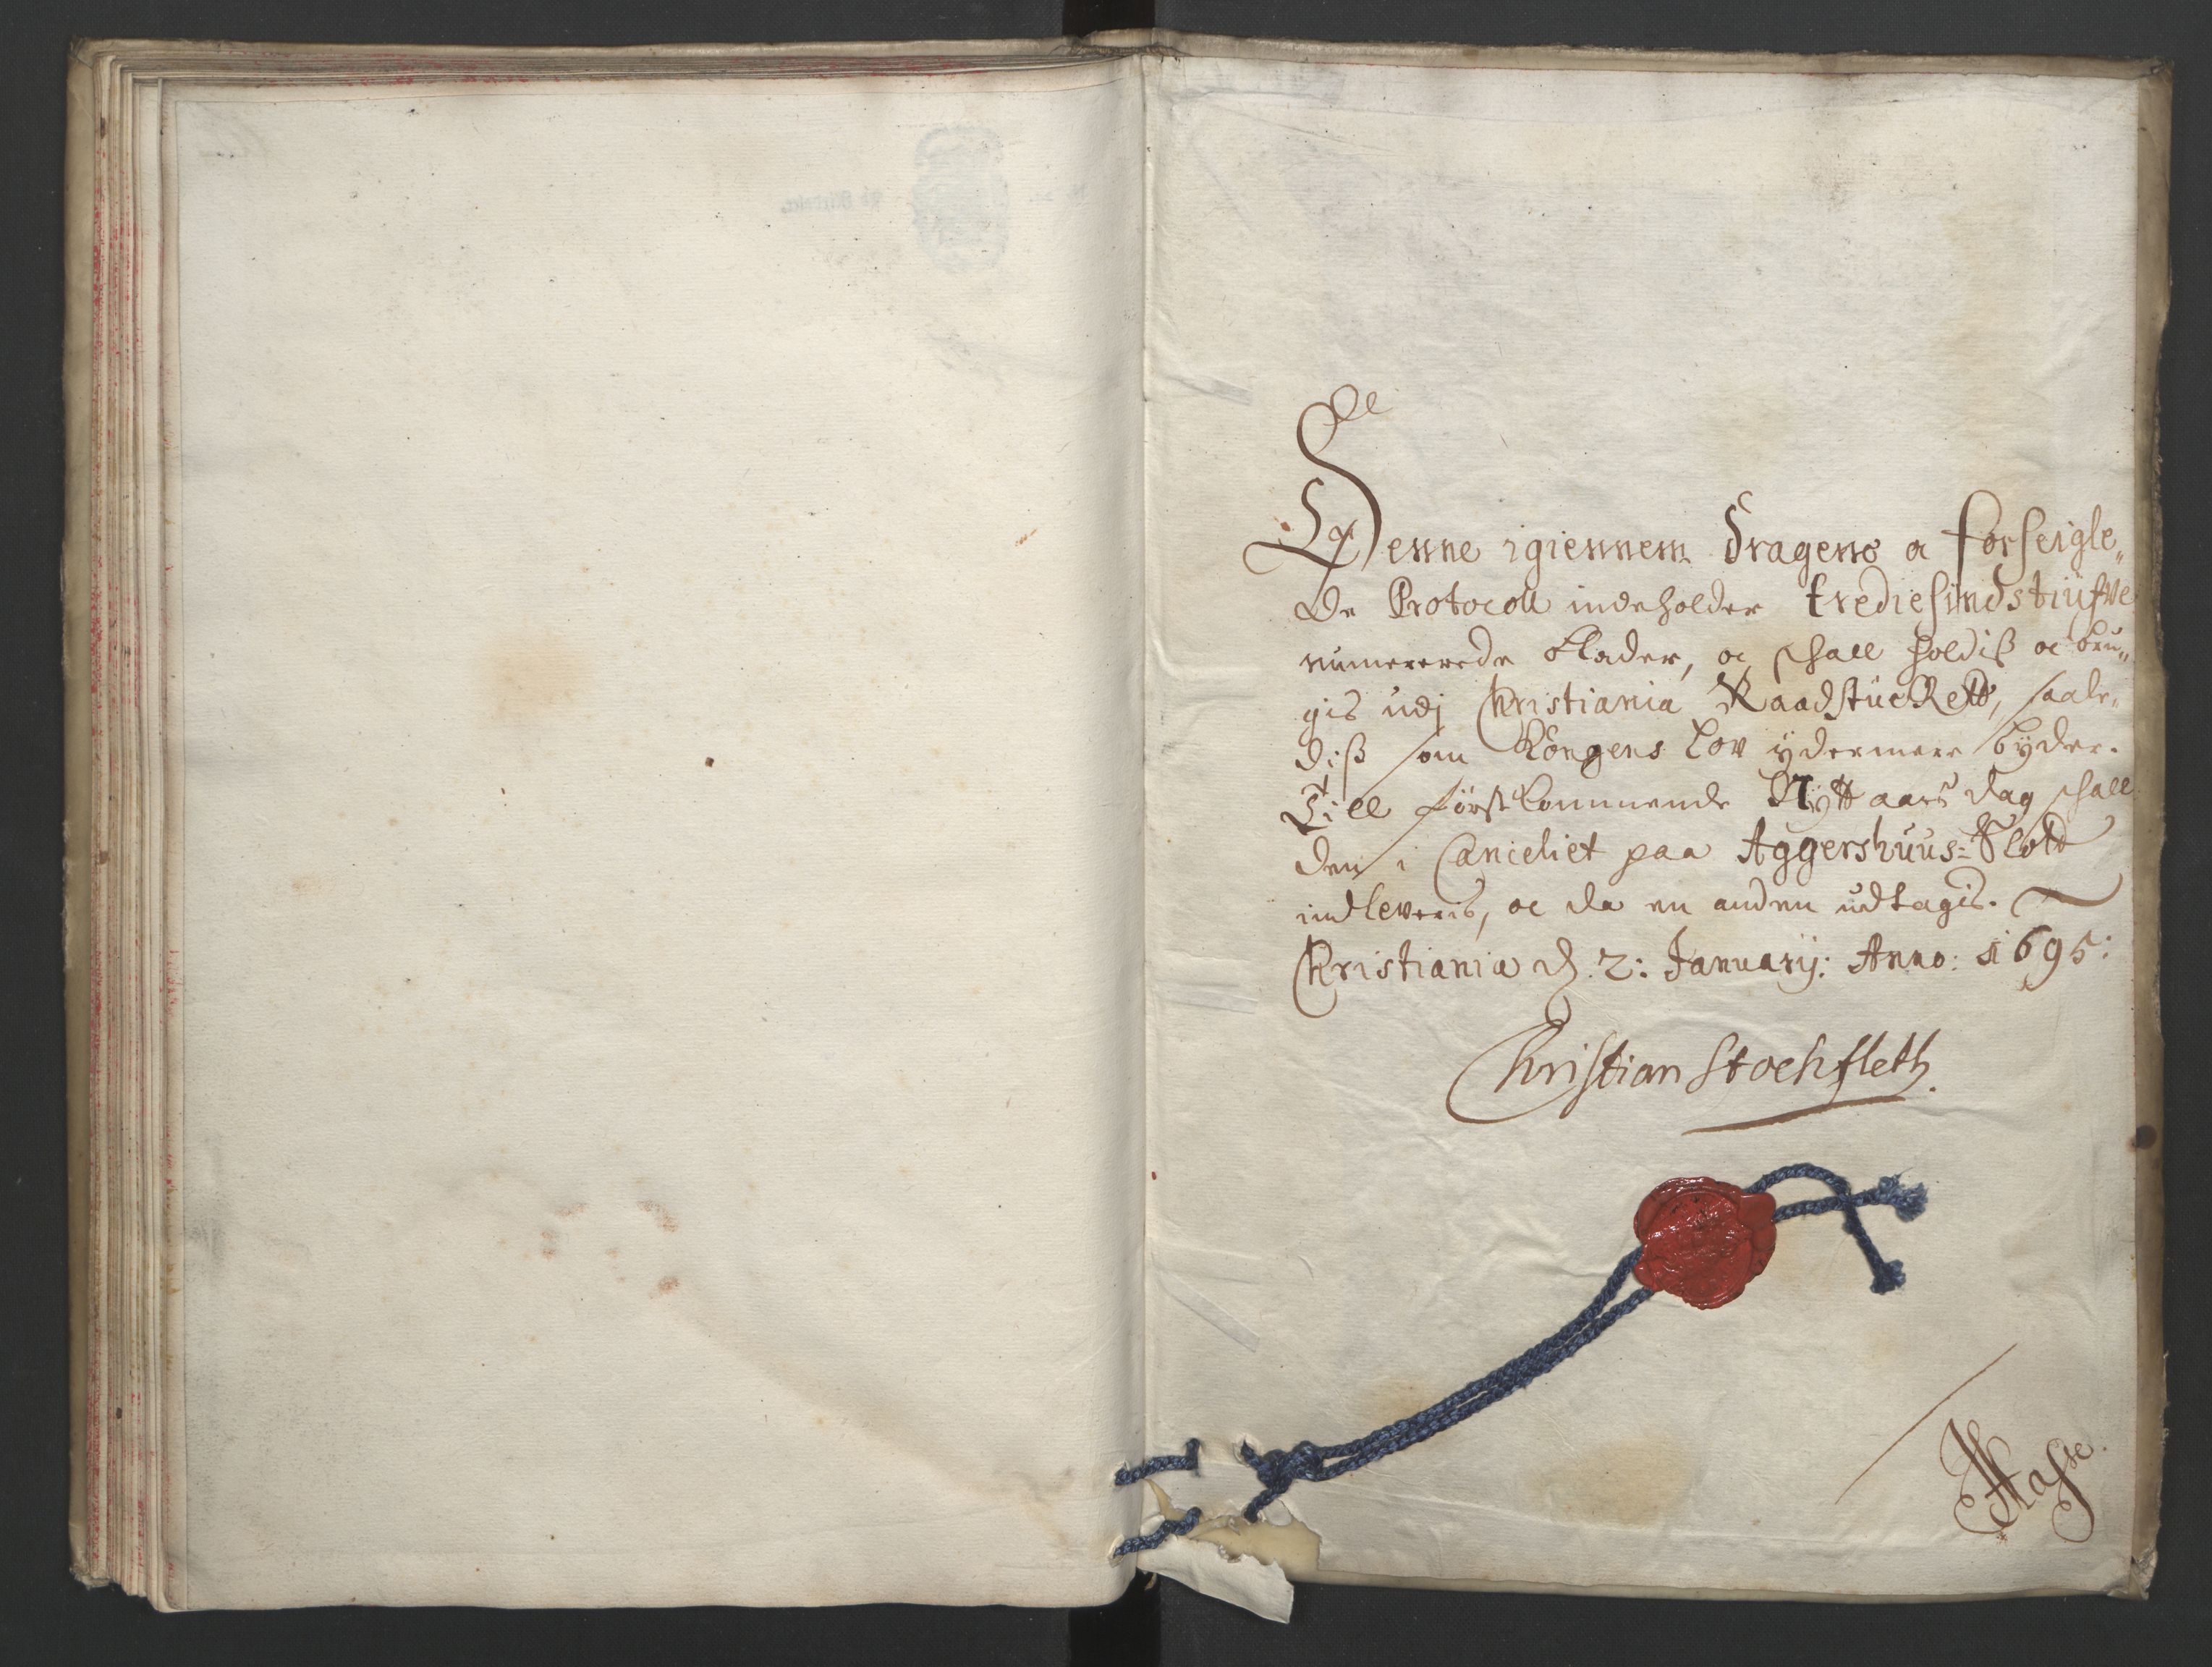 Denne igiennem dragene oc forseigle„
de Protocoll indeholder trediesindstiufve
numererede blader, oc schall holdiss oc bru„
gis udj Christiania Raadstue Rett, saale„
diss som Kongens Lov ydermere byder.
Till förstkommende Nytt aars dag schall
den i Canceliet paa Aggershuus=Slott
indleveris, oc da en anden udtagis.
Christiania d. 2: Januarij: Anno: 1695:
Christian Stochfleth.